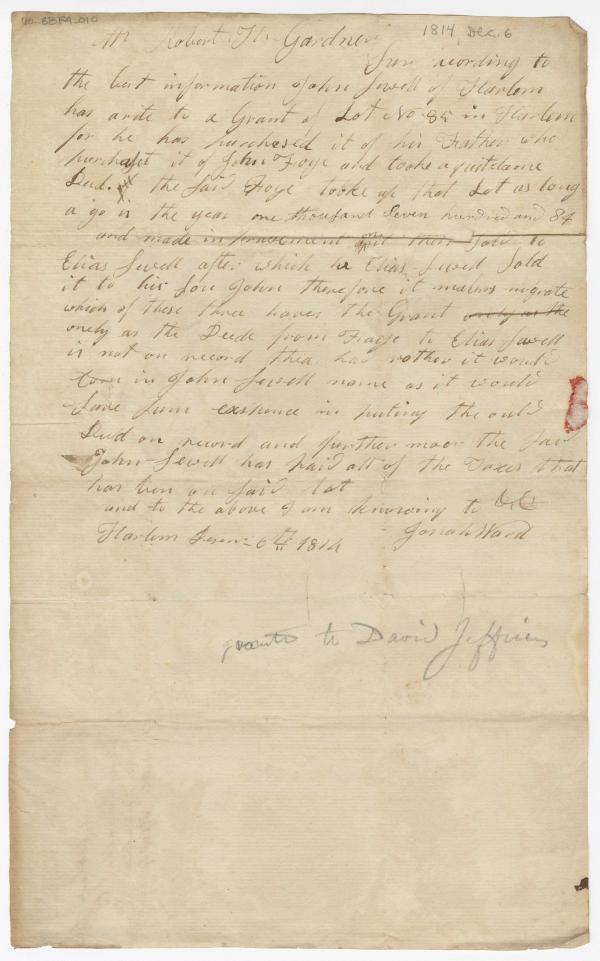 40-BBFA-010
1814, Dec. 6
Mr Robert H. Gardner
Sur recording to
the best information John Sewell of Harlem
has a rite to a Grant of Lot No 85 in Harlem
for he has purchased it of his Father who
purchaset it of John Froye and tooke a quitclame
Deed. the said Froye tooke up that Lot as long
a go is the year one thousand Seven hundred and 84
and made improvement on it then sold to
Elias Sewell after which he Elias Sewell Sold
it to his Son John therefore it makes no grate
which of these three haves the Grant only as the
onely as the Deede from Froye to Elias Sewell
is not on record thea had rother it would
Com in John Sewell name as it would
Save Sum expence in puting the ould
Deed on record and further moor the said
John Sewell has paid all of the Taxes that
has ben on said lot
and to the above I am knowing to
Harlem Desem 6th 1814 Jonah Ward
to David Jeffries